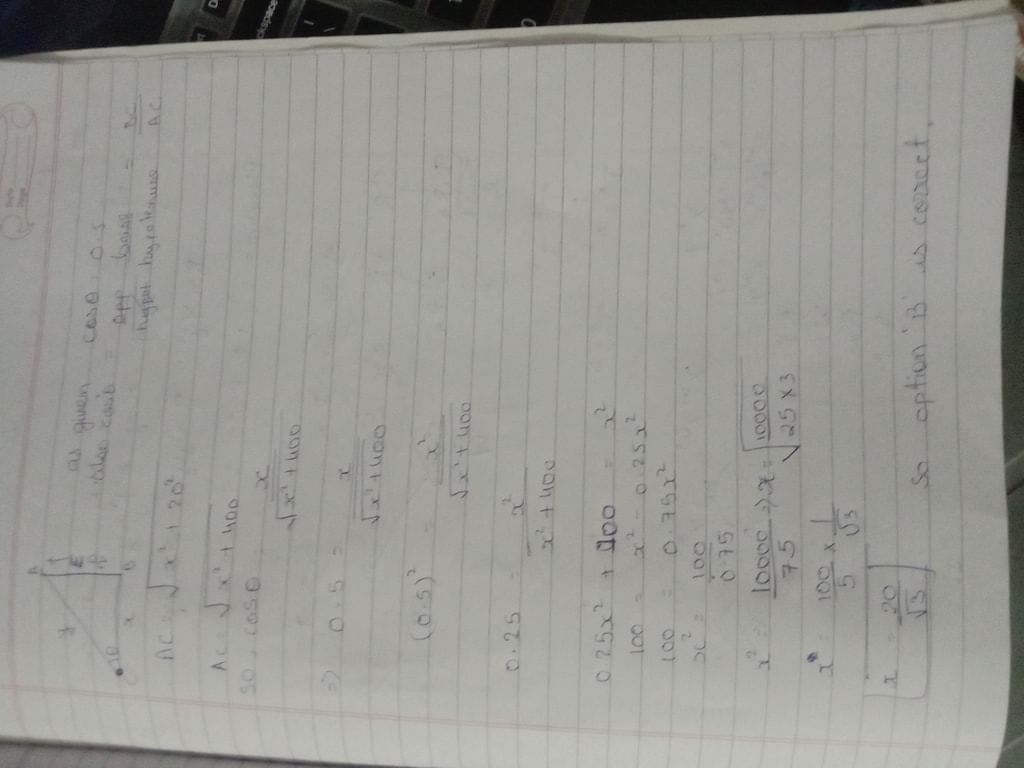 A
y
20
θ
x
B
as given cosθ = 0.5
also cosθ = opp base / hypot hypotenuse = BC / AC
AC = √x² + 20²
AC = √x² + 400
so, cosθ = x / √x² + 400
=> 0.5 = x / √x² + 400
(0.5)² = x² / √x² + 400
0.25 = x² / x² + 400
0.25x² + 100 = x²
100 = x² - 0.25x²
100 = 0.75x²
x² = 100 / 0.75
x² = 10000 / 75 => x = √10000 / 25 × 3
x = 100 / 5 × 1 / √3
x = 20 / √3
so option 'B' is corect.